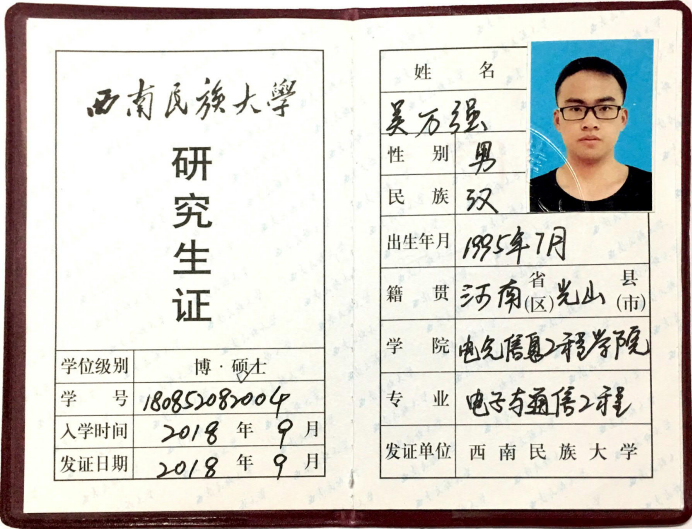 西南民族大学
研究生证
学位级别 博·硕士
学号 180852082004
入学时间 2018年9月
发证日期 2018年9月
姓名
吴万强
性别 男
民族 汉
出生年月 1995年7月
籍贯 河南省(区)光山县(市)
学院 电气信息工程学院
专业 电子与通信工程
发证单位 西南民族大学